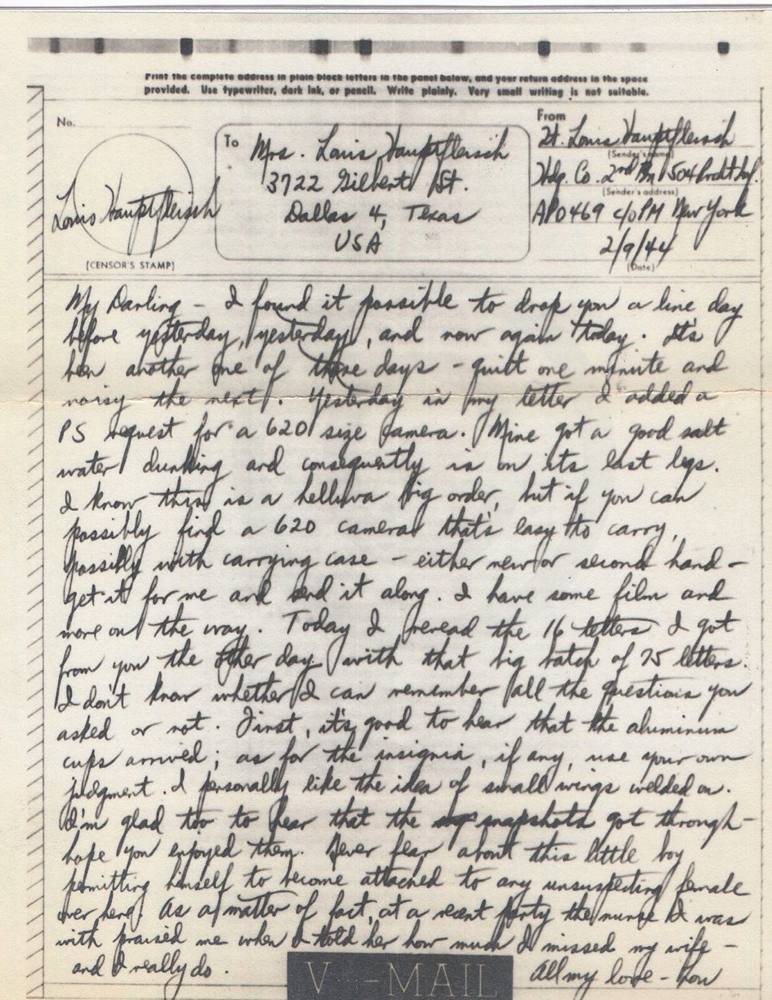 Print the complete address in plain block letters in the panel below, and your return address in the space
provided. Use typewriter, dark ink, or pencil. Write plainly. Very small writing is not suitable.
No.
Louis Hauptfleisch
[CENSOR'S STAMP]
To
Mrs. Louis Hauptfleisch
3722 Gilbert St.
Dallas 4, Texas
USA
From
Lt. Louis Hauptfleisch
(Sender's name)
Hdq. Co. 2nd Bn 504 Prcht Inf.
(Sender's address)
APO 469 c/o PM New York
2/9/44
(Date)
My Darling - I found it possible to drop you a line day
before yesterday, yesterday, and now again today. It's
been another one of those days - quiet one minute and
noisy the next. Yesterday in my letter I added a
PS request for a 620 size camera. Mine got a good salt
water dunking and consequently is on its last legs.
I know this is a helluva big order, but if you can
possibly find a 620 camera that's easy to carry,
possibly with carrying case - either new or second hand -
get it for me and send it along. I have some film and
more on the way. Today I reread the 16 letters I got
from you the other day with that big batch of 75 letters.
I don't know whether I can remember all the questions you
asked or not. First, it's good to hear that the aluminum
cups arrived; as for the insignia, if any, use your own
judgment. I personally like the idea of small wings welded on.
I'm glad too to hear that the snapshots got through -
hope you enjoyed them. Never fear about this little boy
permitting himself to become attached to any unsuspecting female
over here. As a matter of fact, at a recent party the nurse I was
with praised me when I told her how much I missed my wife -
and I really do.
All my love - Lou
V···—MAIL